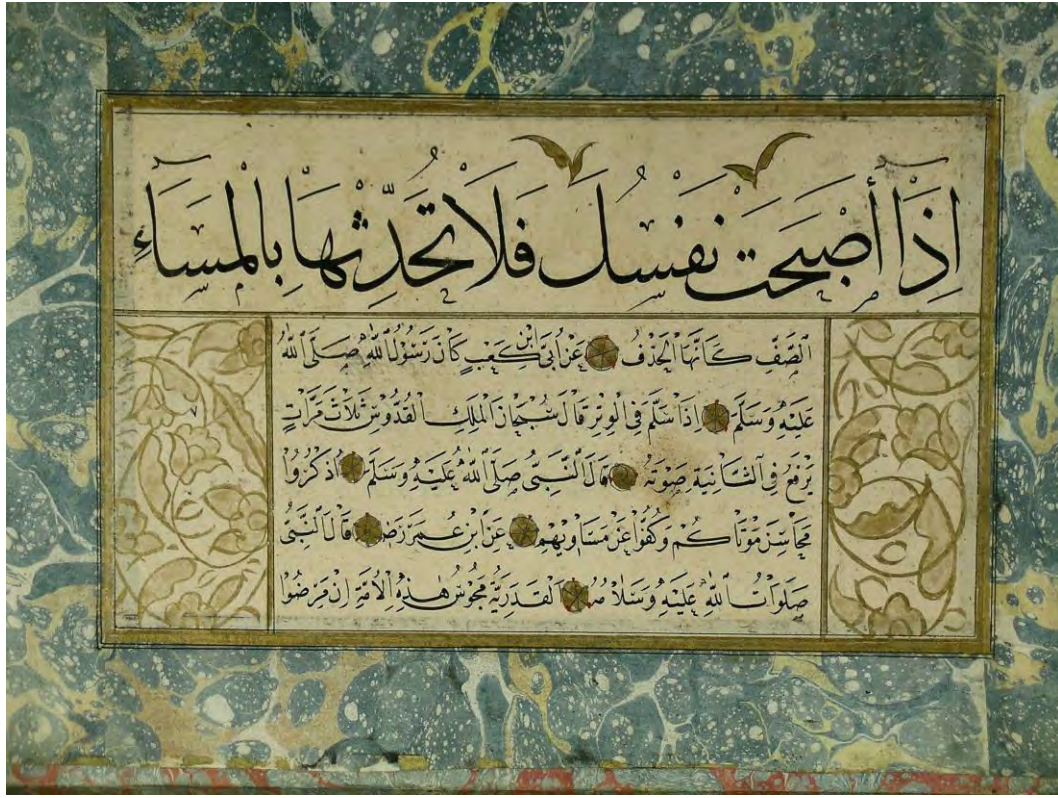 اِذَا أَصْبَحَتْ نَفْسُكَ فَلَا تُحَدِّثْهَا بِالْمَسَاءِ
الصَّفِّ كَاَنَّهَا الْحَذْفُ عَنْ اُبَيِّ ابْنِ كَعْبٍ كَانَ رَسُولُ اللّٰهِ صَلَّى اللّٰهُ
عَلَيْهِ وَسَلَّمَ اِذَا سَلَّمَ فِي الْوِتْرِ قَالَ سُبْحَانَ الْمَلِكِ الْقُدُّوسِ ثَلَاثَ مَرَّاتٍ
يَرْفَعُ فِي الثَّانِيَةِ صَوْتَهُ قَالَ النَّبِيُّ صَلَّى اللّٰهُ عَلَيْهِ وَسَلَّمَ اُذْكُرُوا
مَحَاسِنَ مَوْتَاكُمْ وَكُفُّوا عَنْ مَسَاوِيهِمْ عَنِ ابْنِ عُمَرَ رَضِ قَالَ النَّبِيُّ
صَلَوَاتُ اللّٰهِ عَلَيْهِ وَسَلَامُهُ الْقَدَرِيَّةُ مَجُوسُ هٰذِهِ الْاُمَّةِ اِنْ مَرِضُوا